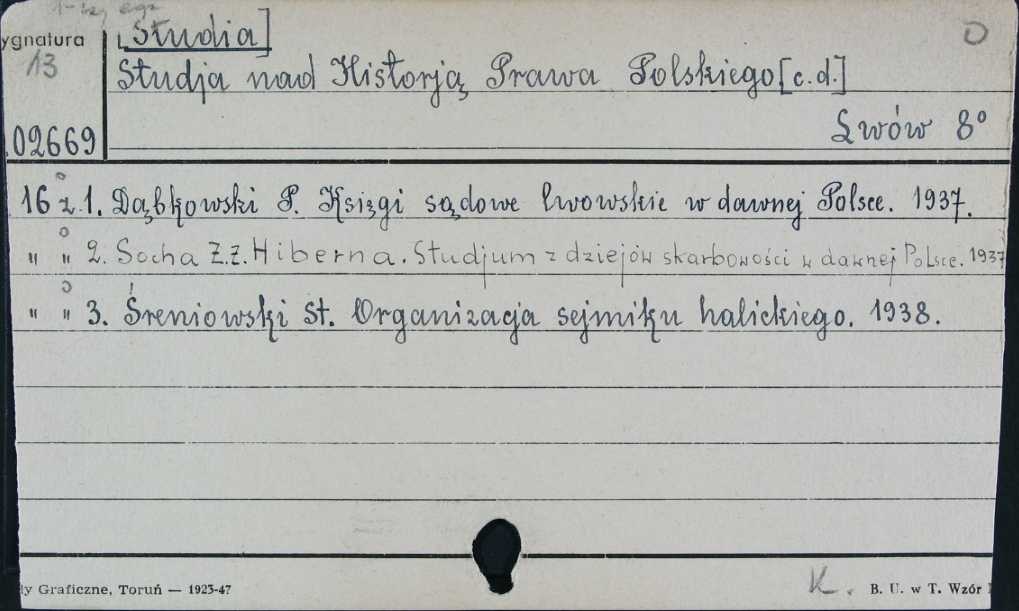 1-szy egz
ygnatura
13
[Studia]
O
Studja nad Historją Prawa Polskiego [c.d.]
Lwów 8°
02669
16 z. 1. Dąbkowski P. Księgi sądowe lwowskie w dawnej Polsce. 1937.
" " 2. Socha Z.Z. Hiberna. Studjum z dziejów skarbowości w dawnej Polsce. 1937
" " 3. Śreniowski St. Organizacja sejmiku halickiego. 1938.
ły Graficzne, Toruń — 1925-47
K.
B. U. w T. Wzór